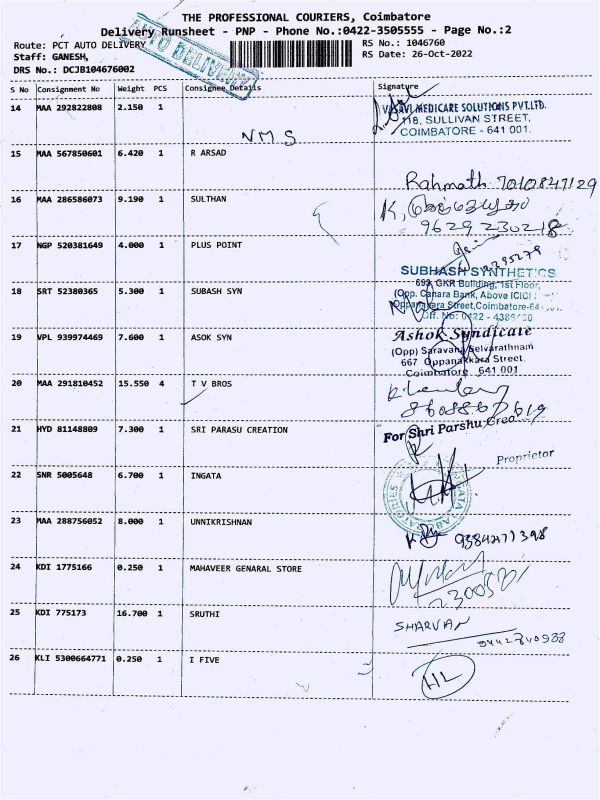 THE PROFESSIONAL COURIERS, Coimbatore
Delivery Runsheet - PNP - Phone No.:0422-3505555 - Page No.:2
Route: PCT AUTO DELIVERY
AUTO DELIVERY
RS No.: 1046760
Staff: GANESH,
RS Date: 26-Oct-2022
DRS No.: DCJB104676002
S No Consignment No Weight PCS Consignee Details Signature
14 MAA 292822808 2.150 1 NMS
VASAVI MEDICARE SOLUTIONS PVT.LTD.
118, SULLIVAN STREET,
COIMBATORE - 641 001.
15 MAA 567850601 6.420 1 R ARSAD
Rahmath 7010847129
16 MAA 286586073 9.190 1 SULTHAN
K,
9629 230218
17 NGP 520381649 4.000 1 PLUS POINT
SUBHASH SYNTHETICS
693, GKR Building, 1st Floor,
(Opp. Canara Bank, Above ICICI
18 SRT 52380365 5.300 1 SUBASH SYN
Oppanakara Street, Coimbatore-64
Off. No: 0422 -
19 VPL 939974469 7.600 1 ASOK SYN
Ashok Syndicate
(Opp) Saravana Selvarathnam
667 Oppanakkara Street,
Coimbatore 641 001
20 MAA 291810452 15.550 4 T V BROS
21 HYD 81148809 7.300 1 SRI PARASU CREATION
For Shri Parshu Crea
Proprietor
22 SNR 5005648 6.700 1 INGATA
23 MAA 288756052 8.000 1 UNNIKRISHNAN
9384271398
24 KDI 1775166 0.250 1 MAHAVEER GENARAL STORE
25 KDI 775173 16.700 1 SRUTHI
SHARVAN
26 KLI 5300664771 0.250 1 I FIVE
HL